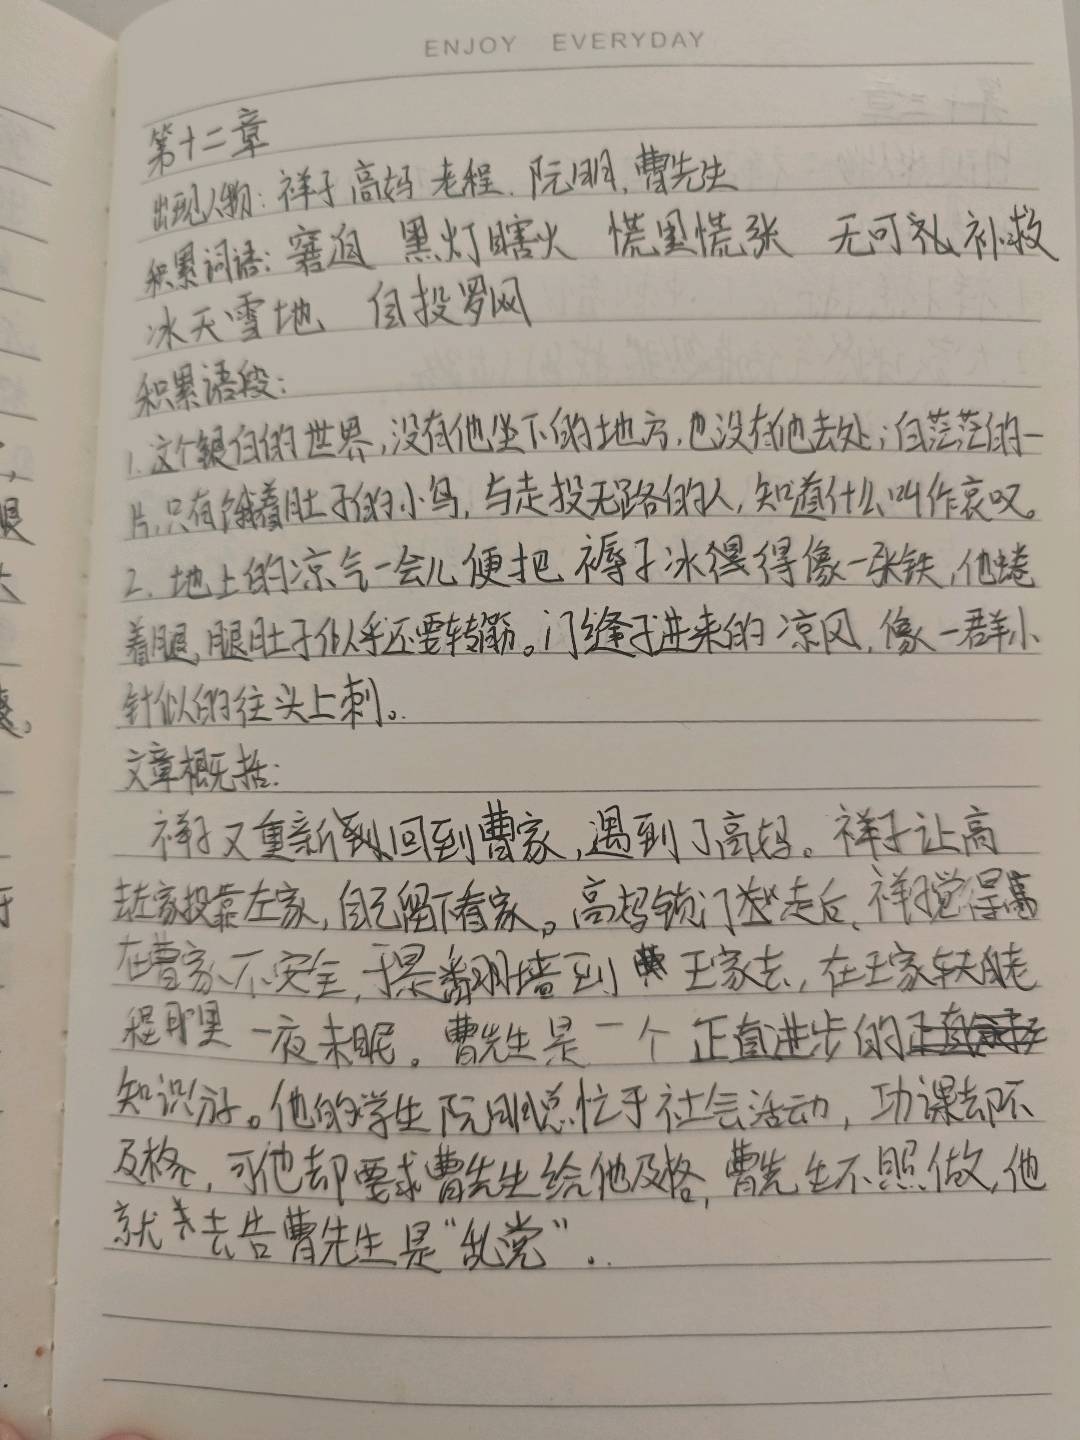 ENJOY EVERYDAY
第十二章
出现人物：祥子 高妈 老程、阮明、曹先生
积累词语：窘迫 黑灯瞎火 慌里慌张 无可补救
冰天雪地 自投罗网
积累语段：
1. 这个银白的世界，没有他坐下的地方，也没有他去处；白茫茫的一
片，只有饿着肚子的小鸟，与走投无路的人，知道什么叫作哀叹。
2. 地上的凉气一会儿便把褥子冰得像一张铁，他蜷
着腿，腿肚子似乎还要转筋。门缝子进来的凉风，像一群小
针似的往头上刺。
文章概括：
祥子又重新回到曹家，遇到了高妈。祥子让高
去左家投靠左家，自己留下看家。高妈锁门走后，祥觉得
在曹家不安全，于是翻墙到王家去，在王家车夫老
程那里一夜未眠。曹先生是一个正直进步的
知识分子。他的学生阮明总忙于社会活动，功课却不
及格，可他却要求曹先生给他及格，曹先生不照做，他
就去告曹先生是“乱党”。